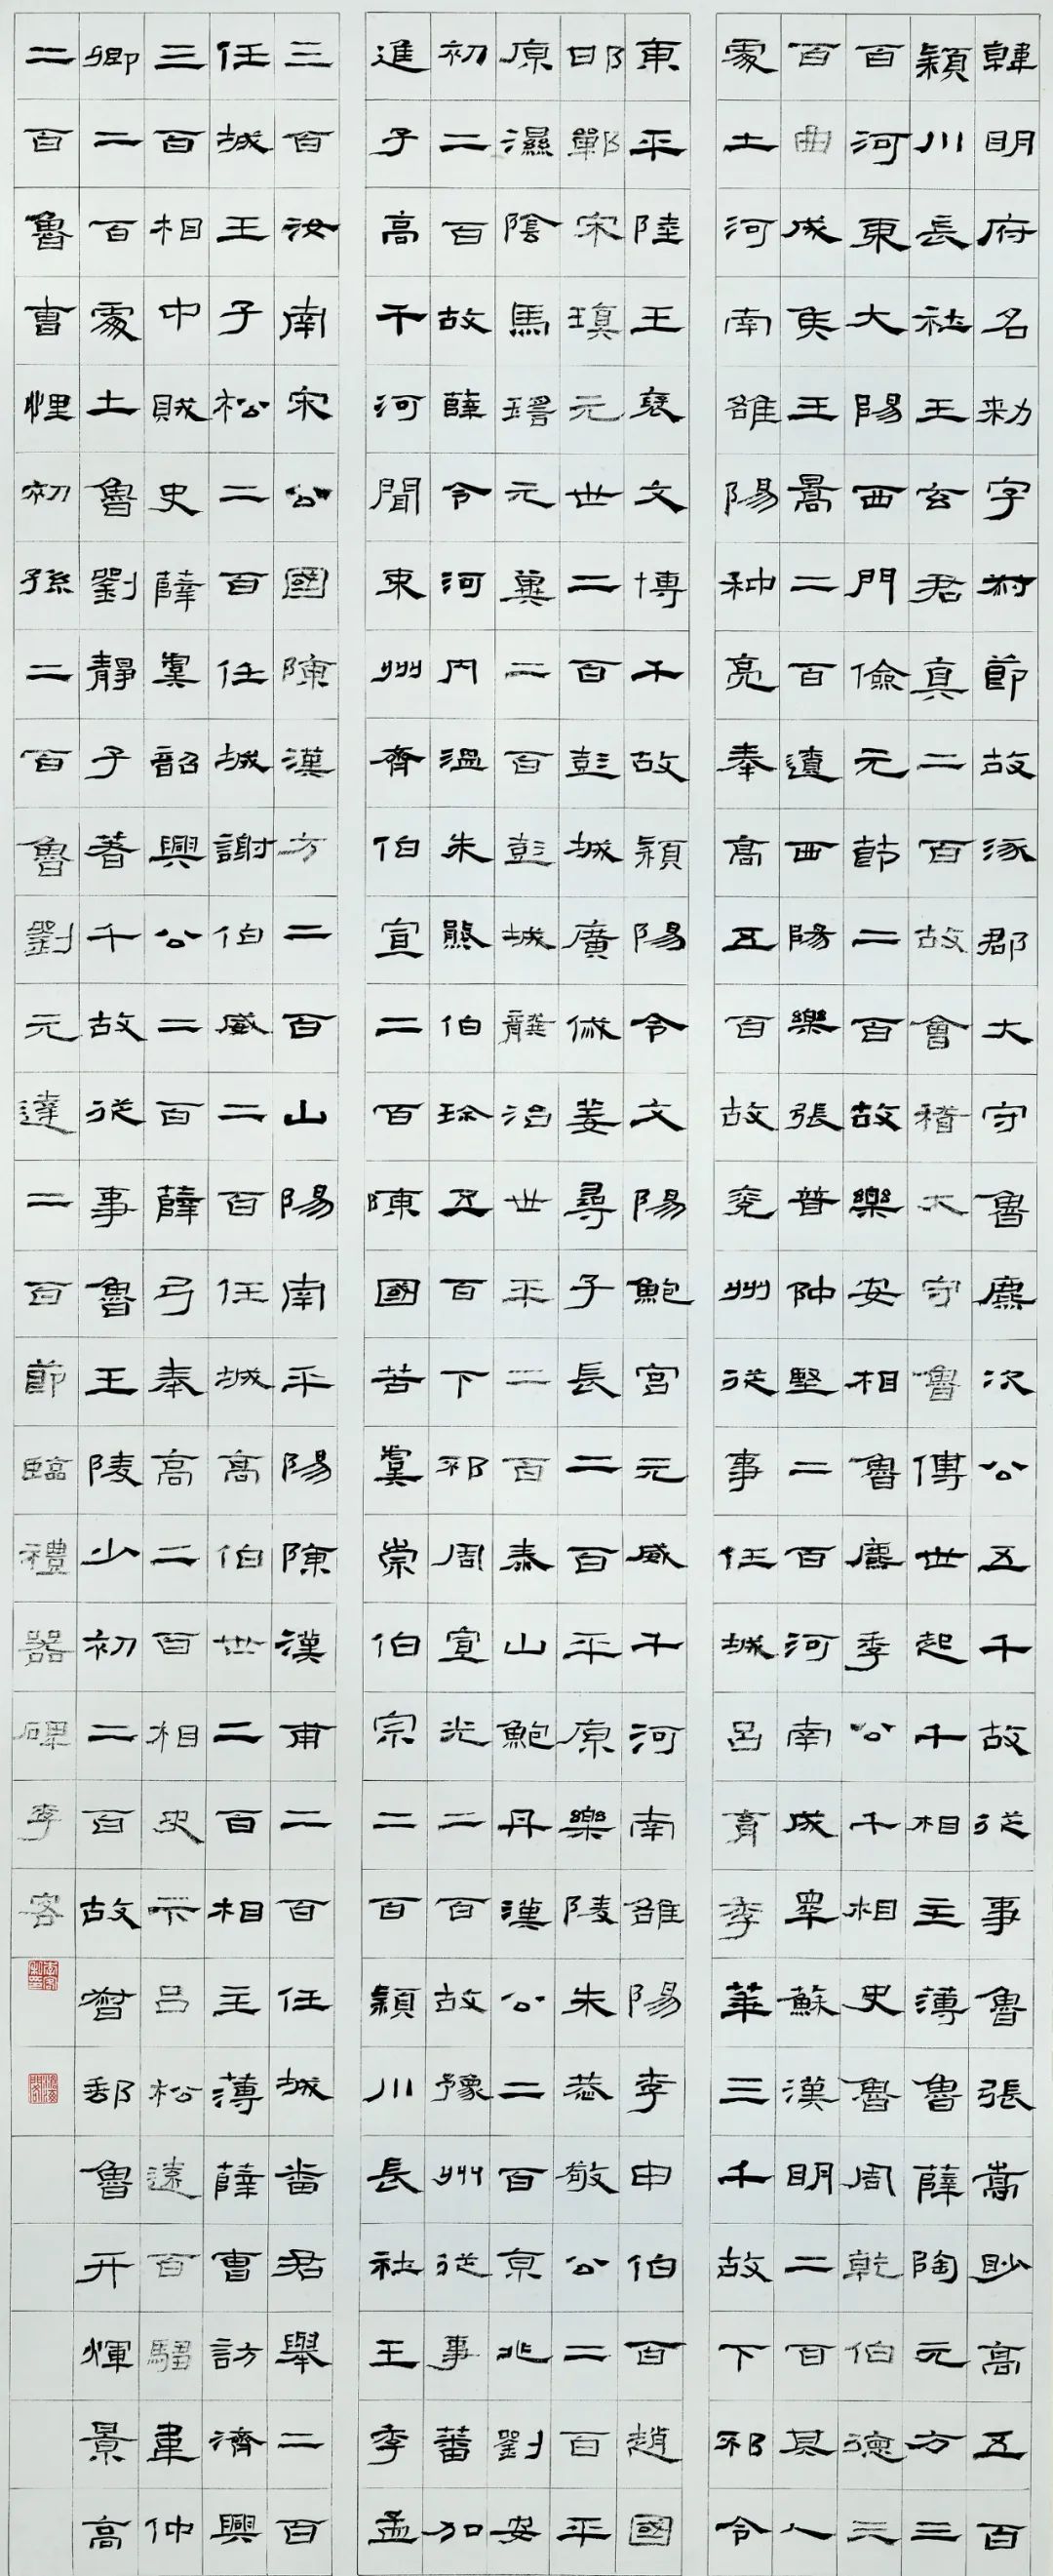 韓明府名勑字叔節故涿郡大守魯麃次公五千故從事魯張嵩眇高五百
潁川長社王玄君真二百故會稽大守魯傅世起千相主薄魯薛陶元方三
百河東大陽西門儉元節二百故樂安相魯麃季公千相史魯周乾伯德三
百曲成侯王暠二百遺西陽樂張普仲堅二百河南成睾蘇漢明二百其人
處土河南雒陽种亮奉高五百故兗州從事任城呂育季華三千故下邳令
東平陸王褒文博千故潁陽令文陽鮑宮元威千河南雒陽李申伯百趙國
邯鄲宋瑱元世二百彭城廣戚姜尋子長二百平原樂陵朱恭敬公二百平
原濕陰馬瑤元冀二百彭城龔治世平二百泰山鮑丹漢公二百京兆劉安
初二百故薛令河內溫朱熊伯珍五百下邳周宣光二百故豫州從事蕃加
進子高千河間束州齊伯宣二百陳國苦虞崇伯宗二百潁川長社王季孟
三百汝南宋公國陳漢方二百山陽南平陽陳漢甫二百任城番君舉二百
任城王子松二百任城謝伯威二百任城高伯世二百相主薄薛曹訪濟興
三百相中賊史薛虞韶興公二百薛弓奉高二百相史卞呂松遠百騶韋仲
卿二百處土魯劉靜子著千故從事魯王陵少初二百故督郵魯开煇景高
二百魯曹悝初孫二百魯劉元達二百節臨禮器碑李容